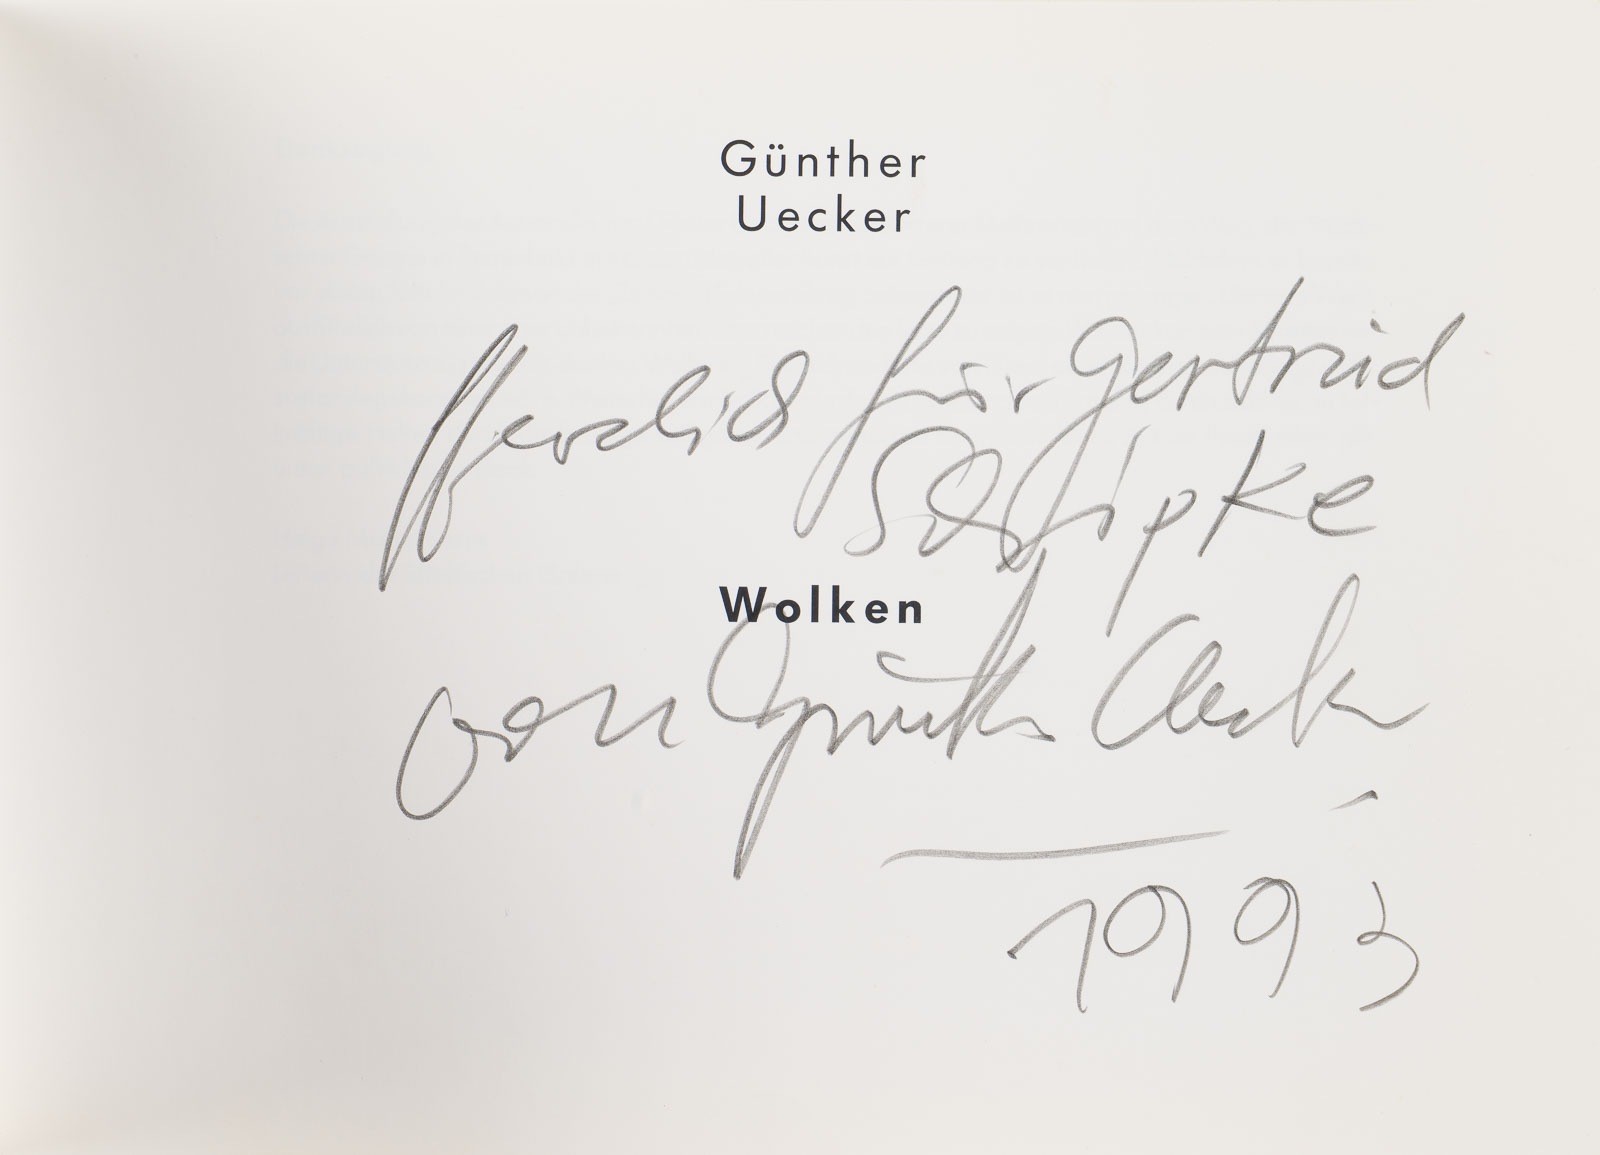 Günther
Uecker
Herzlich für Gertrud
Schipke
Wolken
von Günther Uecker
1993